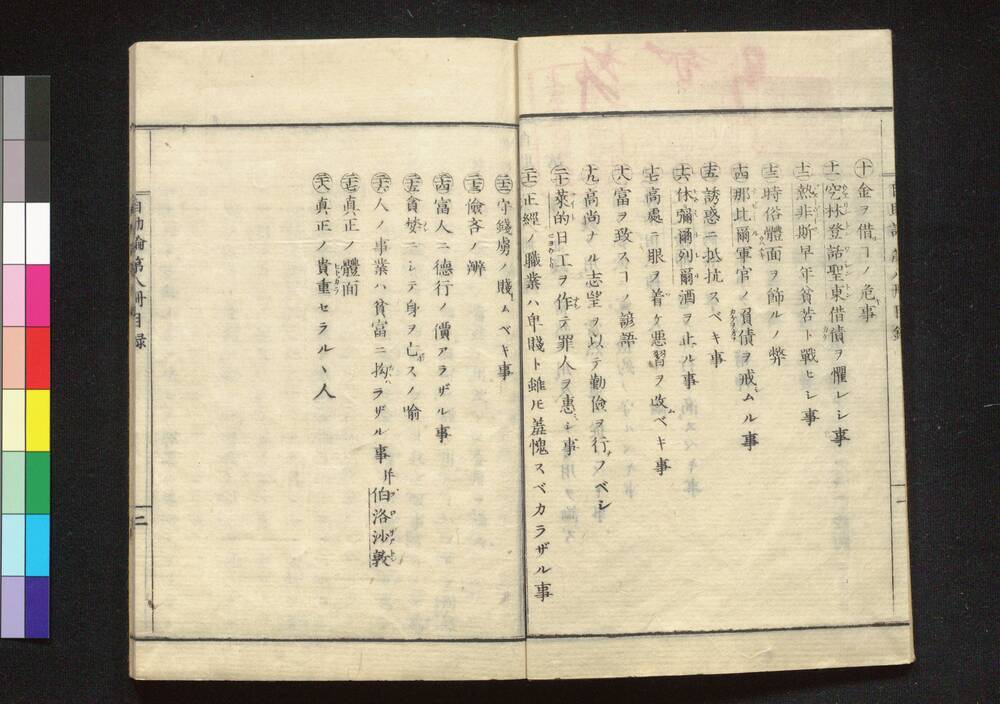 ㊉ 金ヲ借コノ危事
十一 空林登・話聖東借債ヲ懼レシ事
十二 熱非斯早年貧苦ト戰ヒシ事
十三 時俗體面ヲ飾ルノ弊
十四 那比爾軍官ノ負債ヲ戒ムル事
十五 誘惑ニ抵抗スベキ事
十六 休彌爾列爾酒ヲ止ル事
十七 高處ニ眼ヲ着ケ悪習ヲ改ベキ事
十八 富ヲ致スコノ諺語
十九 高尚ナル志望ヲ以テ勤儉ヲ行フベシ
二十 萊的日工ヲ作テ罪人ヲ惠シ事
二十一 正經ノ職業ハ卑賤ト雖モ羞愧スベカラザル事
二十二 守錢虜ノ賤ムベキ事
二十三 儉吝ノ辨
二十四 富人ニ德行ノ價アラザル事
二十五 貪婪ニシテ身ヲ亡スノ喻
二十六 人ノ事業ハ貧富ニ拘ラザル事 并伯洛沙敦
二十七 真正ノ體面
二十八 真正ノ貴重セラルヽ人
自助論第八冊目録
二